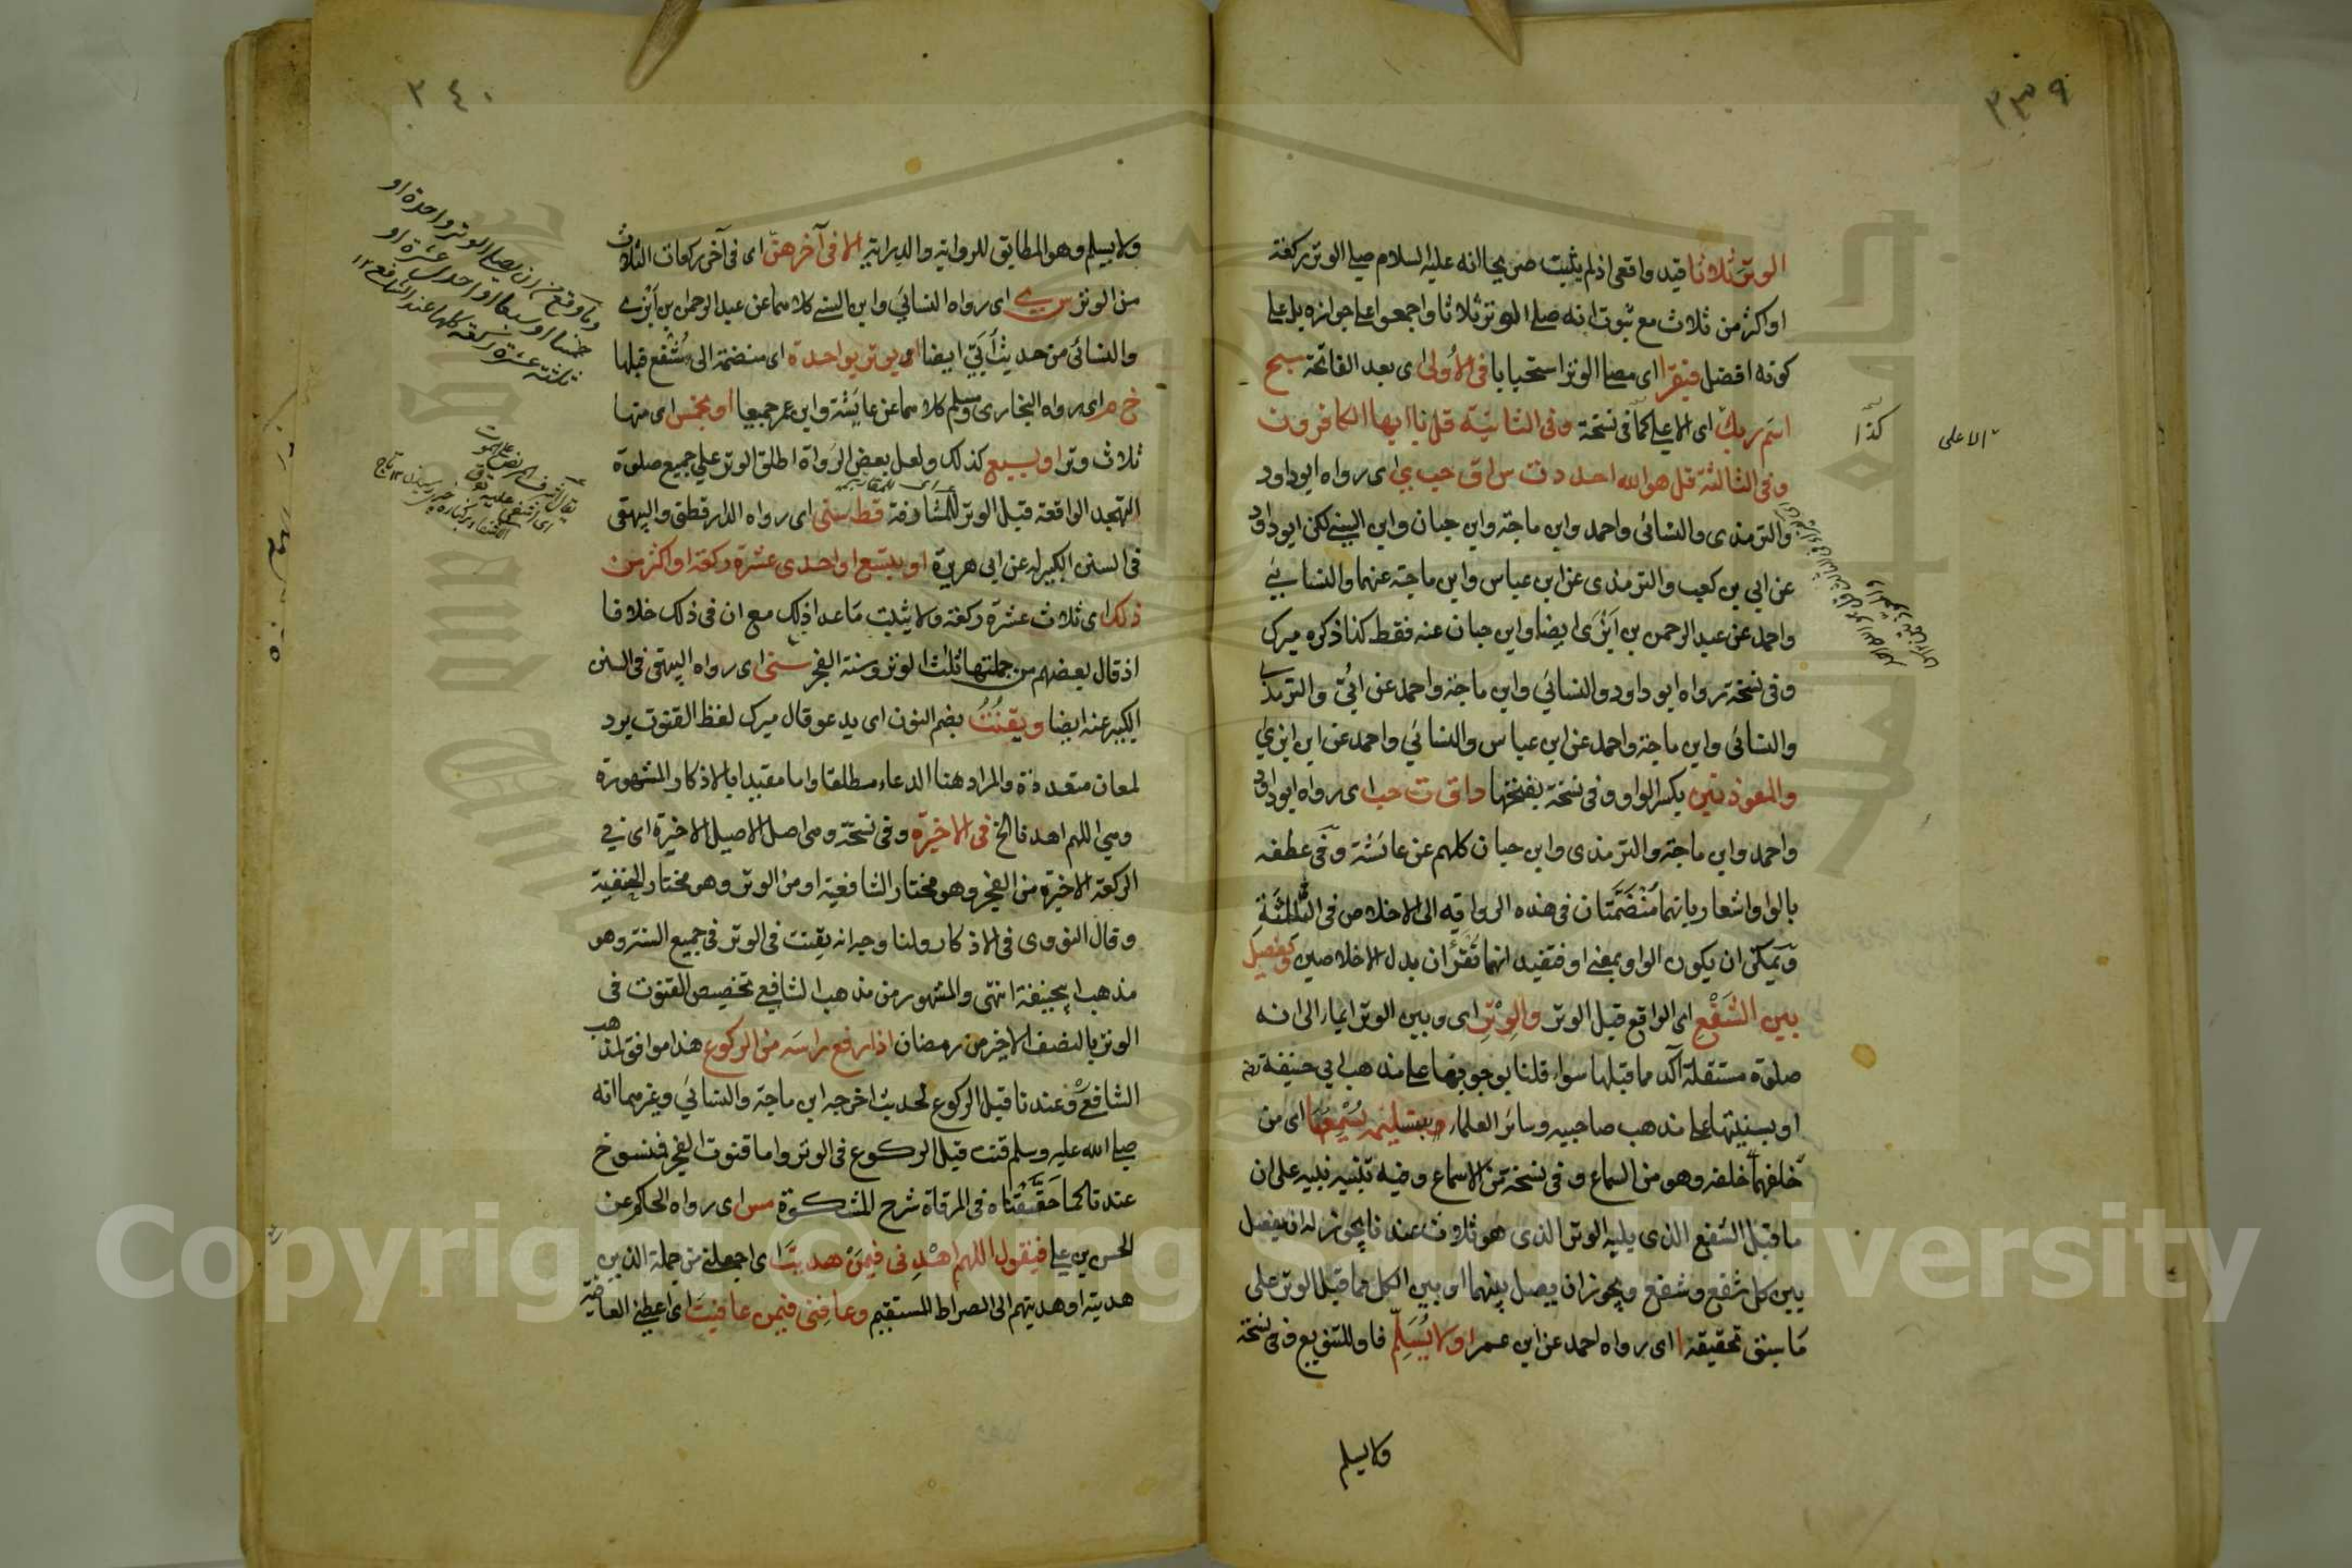 ٣٣٩
الوتر ثلاثا قيد واقعى اذ لم يثبت صريحا انه عليه السلام صلى الوتر ركعة
او اكثر من ثلاث مع ثبوت انه صلى الوتر ثلاثا واجمعوا على جوازه بل على
كونه افضل فيقرا اى مصلى الوتر استحبابا فى الأولى اى بعد الفاتحة سبح
اسم ربك اى الاعلى كما فى نسخة وفى الثانية قل يا ايها الكافرون
وفى الثالثة قل هو الله احد د ت س ا ق حب ى اى رواه ابو داود
والترمذى والنسائى واحمد وابن ماجة وابن حبان وابن السنى لكن ابو داود
عن ابي بن كعب والترمذى عن ابن عباس وابن ماجة عنهما والنسائي
واحمد عن عبد الرحمن بن أبزى ايضا وابن حبان عنه فقط كذا ذكره ميرك
وفى نسخة رواه ابو داود والنسائي وابن ماجة واحمد عن ابيّ والترمذي
والنسائى وابن ماجة واحمد عن ابن عباس والنسائي واحمد عن ابن ابزي
والمعوذتين بكسر الواو وفى نسخة بفتحها د ا ق ت حب اى رواه ابو داود
واحمد وابن ماجة والترمذى وابن حبان كلهم عن عائشة وفى عطفه
بالواو اشعار بانهما منضمتان فى هذه الرواية الى الاخلاص فى الثالثة
ويمكن ان يكون الواو بمعنى او فتفيد انهما تقرءان بدل الاخلاصين ويفصل
بين الشفع اى الواقع قبل الوتر والوتر اى وبين الوتر ايماء الى انه
صلوة مستقلة آكد مما قبلها سواء قلنا بوجوبها على مذهب ابي حنيفة رح
او بسنيتها على مذهب صاحبيه وسائر العلماء بتسليمة يسمعها اى من
خلفها خلفه وهو من السماع وفى نسخة من الاسماع وفيه تنبيه نبيه على ان
ما قبل الشفع الذى يليه الوتر الذى هو ثلاث عندنا يجوز له ان يفصل
بين كل شفع وشفع ويجوز ان يصل بينهما او بين الكل مما قبل الوتر على
ما سبق تحقيقة ا اى رواه احمد عن ابن عمر او لا يسلم فاو للتنويع وفى نسخة
ولا يسلم
كذا
الاعلى
٣٤٠
ولا يسلم وهو المطابق للرواية والدراية الا فى آخرهن اى فى آخر ركعات الثلاث
من الوتر س ي اى رواه النسائي وابن السنى كلاهما عن عبد الرحمن بن أبزى
والنسائى من حديث أبيّ ايضا او يوتر بواحدة اى منضمة الى شفع قبلها
خ م اى رواه البخارى ومسلم كلاهما عن عايشة وابن عمر جميعا او بخمس اى منها
ثلاث وتر او بسبع كذلك ولعل بعض الرواة اطلق الوتر على جميع صلوة
التهجد الواقعة قبل الوتر للمشارفة قط سنى اى رواه الدارقطنى والبيهقى
فى السنن الكبير له عن ابى هريرة او بتسع او احدى عشرة ركعة او اكثر من
ذلك اى ثلاث عشرة ركعة ولا يثبت ما عدا ذلك مع ان فى ذلك خلافا
اذ قال بعضهم من جملتها ثلث الوتر وسنة الفجر سنى اى رواه البيهقى فى السنن
الكبير عنه ايضا ويقنت بضم النون اى يدعو قال ميرك لفظ القنوت يرد
لمعان متعددة والمراد هنا الدعاء مطلقا واما مقيدا بالاذكار المشهورة
وهي اللهم اهدنا الخ فى الاخيرة وفى نسخة وهى اصل الاصيل الاخيرة اى في
الركعة الاخيرة من الفجر وهو مختار الشافعية او من الوتر وهو مختار الحنفية
وقال النووى فى الاذكار ولنا وجه انه يقنت فى الوتر فى جميع السنة وهو
مذهب ابي حنيفة انتهى والمشهور من مذهب الشافعي تخصيص القنوت فى
الوتر بالنصف الاخير من رمضان اذا رفع راسه من الركوع هذا موافق لمذهب
الشافعى وعندنا قبل الركوع لحديث اخرجه ابن ماجة والنسائي وغيرهما انه
صلى الله عليه وسلم قنت قبل الركوع فى الوتر واما قنوت الفجر فمنسوخ
عندنا كما حققناه فى المرقاة شرح المشكوة مس اى رواه الحاكم عن
الحسن بن علي فيقول اللهم اهدنى فيمن هديت اى اجعلنى من جملة الذين
هديته او هديتهم الى الصراط المستقيم وعافنى فيمن عافيت اى اعطنى العافية
وما وقع من ان يصلى الوتر واحدة او
خمسا او سبعا او احدى عشرة او
ثلثة عشرة ركعة كلها عند الشافعى ١٢
Copyright © King Saud University